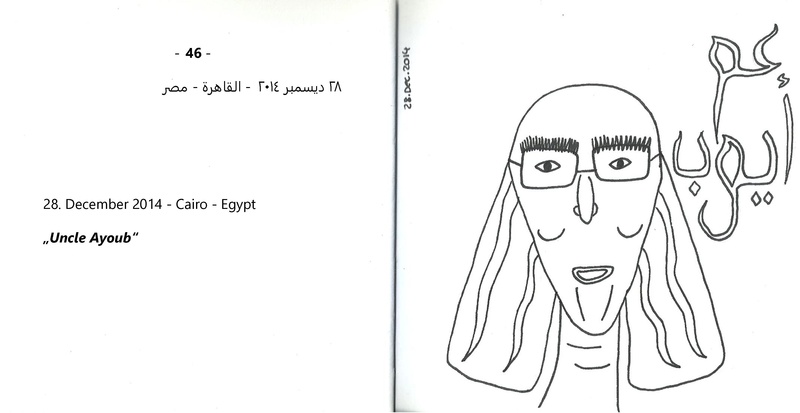 - 46 -
٢٨ ديسمبر ٢٠١٤ - القاهرة - مصر
28. December 2014 - Cairo - Egypt
„Uncle Ayoub“
28.Dec.2014
عم
أيوب